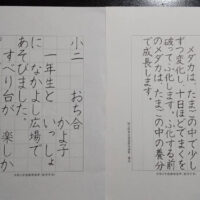 メダカは、たまごの中で少し
ずつ変化し、十日ほどでまくを
破ってふ化します。ふ化する前
のメダカは、たまごの中の養分
で成長します。
小二 おち合
かよ子
一年生と いっしょ
に なかよし広場で
あそびました。
すべり台が 楽しか